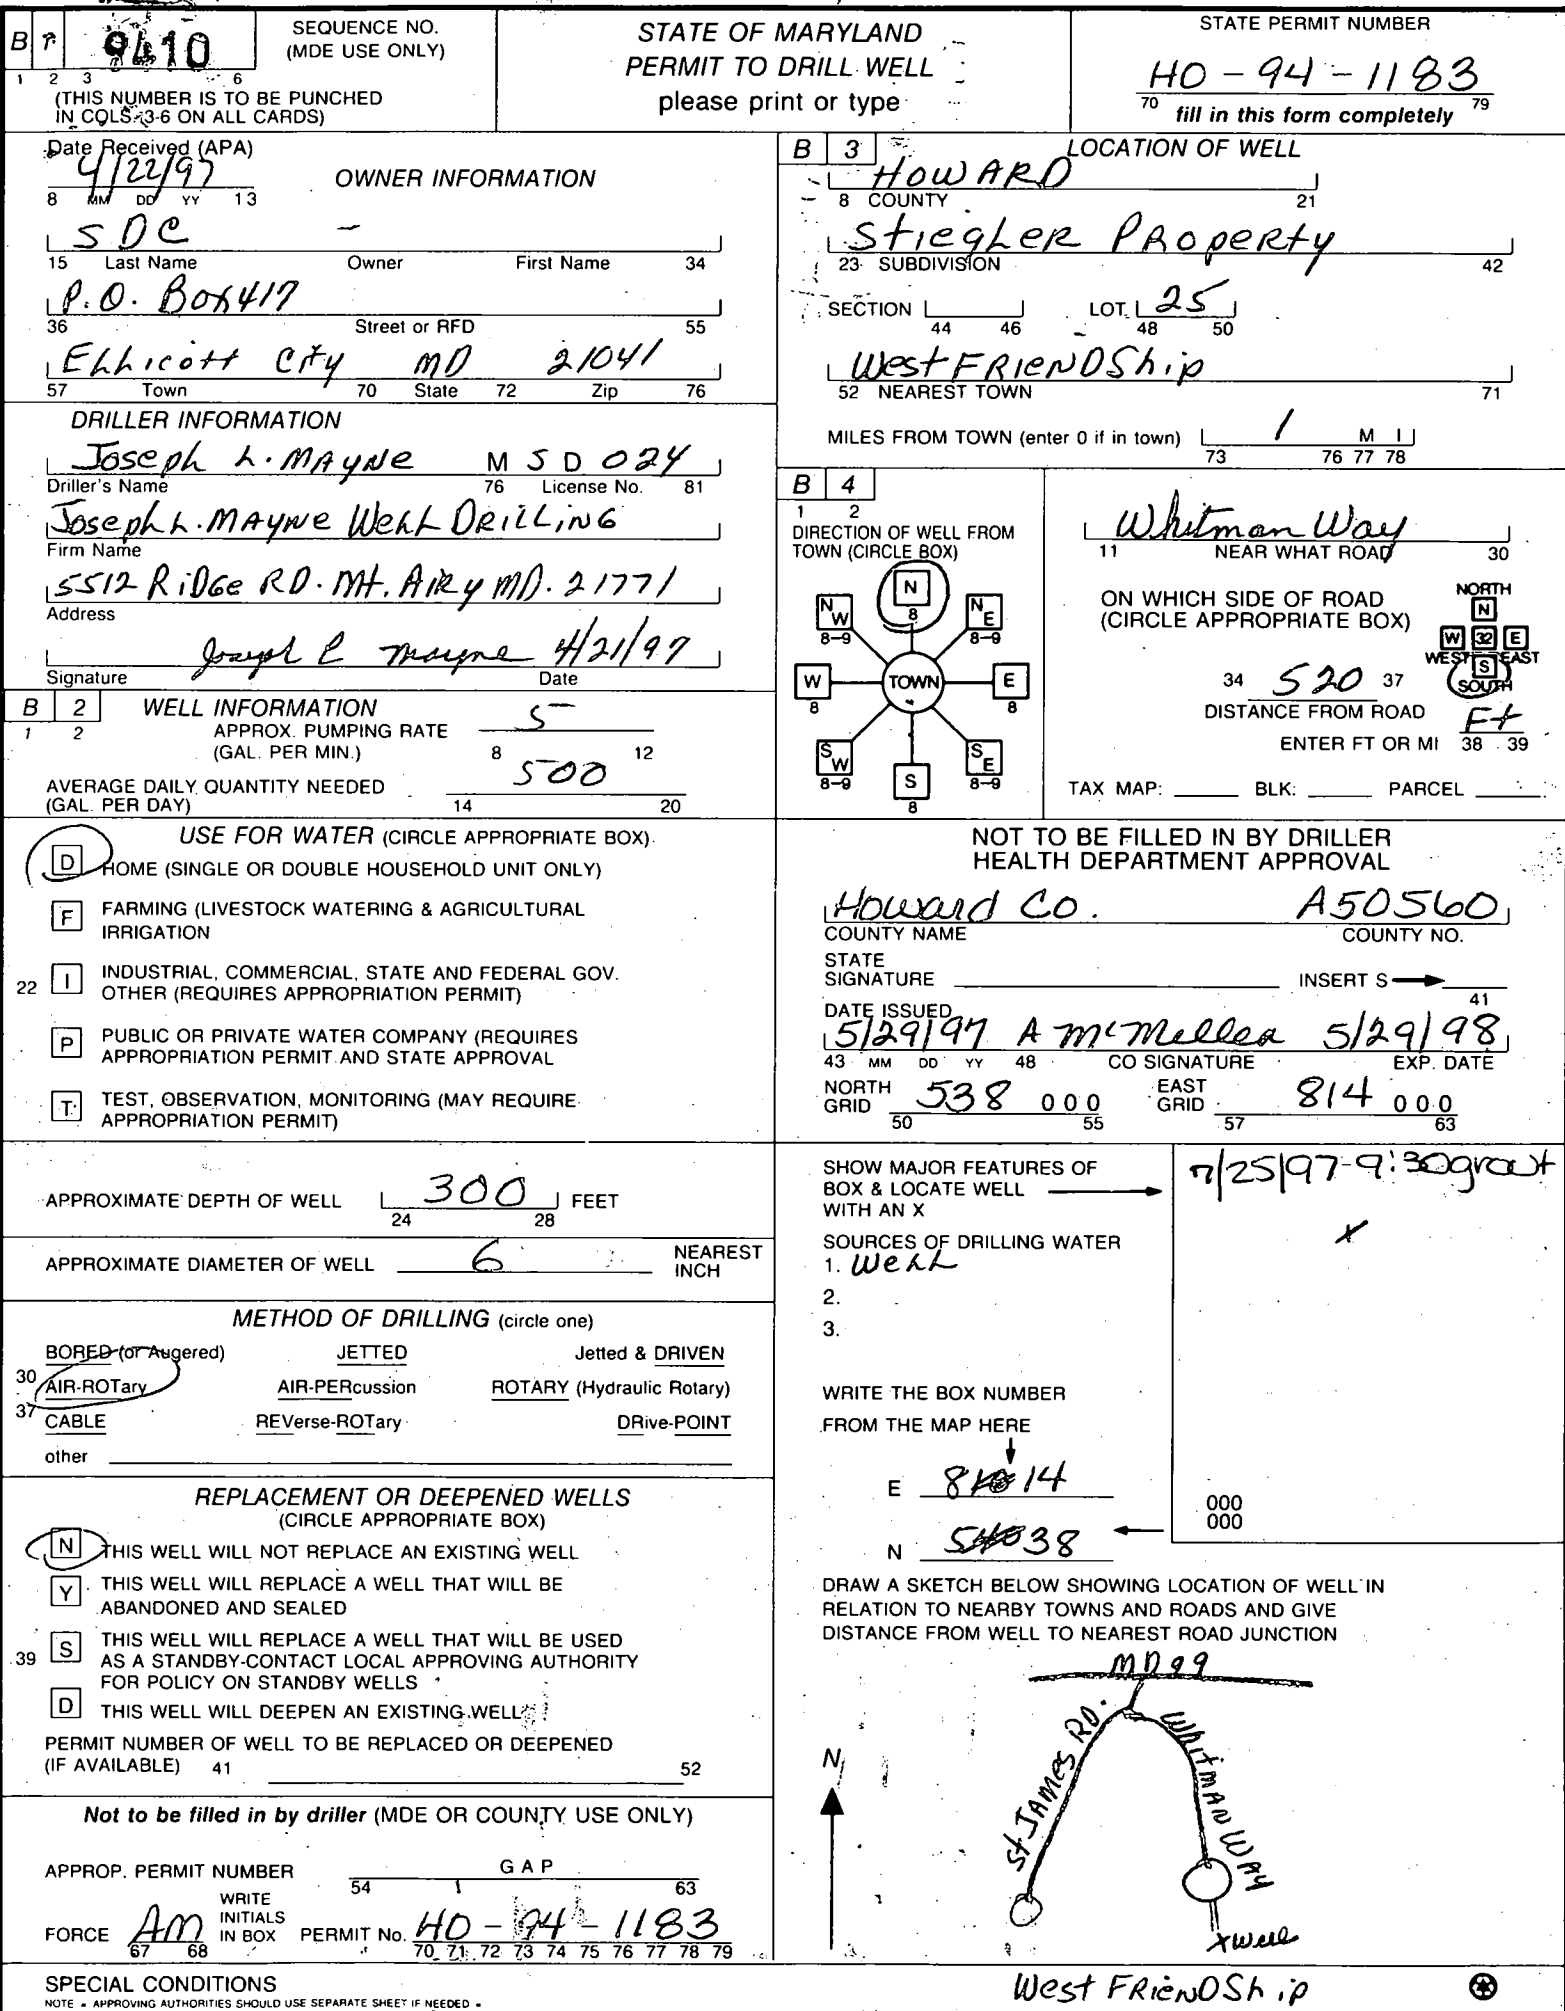 B
9410
1 2 3 6
SEQUENCE NO.
(MDE USE ONLY)
(THIS NUMBER IS TO BE PUNCHED
IN COLS. 3-6 ON ALL CARDS)
STATE OF MARYLAND
PERMIT TO DRILL WELL
please print or type
STATE PERMIT NUMBER
HO - 94 - 1183
70 79
fill in this form completely
Date Received (APA)
4/22/97
8 MM DD YY 13
OWNER INFORMATION
SDC -
15 Last Name Owner First Name 34
P.O. Box 417
36 Street or RFD 55
Ellicott City MD 21041
57 Town 70 State 72 Zip 76
DRILLER INFORMATION
Joseph L. Mayne M S D 024
Driller's Name 76 License No. 81
Joseph L. Mayne Well Drilling
Firm Name
5512 Ridge RD. Mt. Airy MD. 21771
Address
Joseph L Mayne 4/21/97
Signature Date
B 2 WELL INFORMATION
1 2
APPROX. PUMPING RATE
(GAL. PER MIN.) 5
8 12
AVERAGE DAILY QUANTITY NEEDED
(GAL. PER DAY) 500
14 20
USE FOR WATER (CIRCLE APPROPRIATE BOX)
D HOME (SINGLE OR DOUBLE HOUSEHOLD UNIT ONLY)
F FARMING (LIVESTOCK WATERING & AGRICULTURAL
IRRIGATION
22 I INDUSTRIAL, COMMERCIAL, STATE AND FEDERAL GOV.
OTHER (REQUIRES APPROPRIATION PERMIT)
P PUBLIC OR PRIVATE WATER COMPANY (REQUIRES
APPROPRIATION PERMIT AND STATE APPROVAL
T TEST, OBSERVATION, MONITORING (MAY REQUIRE
APPROPRIATION PERMIT)
APPROXIMATE DEPTH OF WELL 300 FEET
24 28
APPROXIMATE DIAMETER OF WELL 6 NEAREST
INCH
METHOD OF DRILLING (circle one)
BORED (or Augered) JETTED Jetted & DRIVEN
30 AIR-ROTary AIR-PERcussion ROTARY (Hydraulic Rotary)
37 CABLE REVerse-ROTary DRive-POINT
other
REPLACEMENT OR DEEPENED WELLS
(CIRCLE APPROPRIATE BOX)
N THIS WELL WILL NOT REPLACE AN EXISTING WELL
Y THIS WELL WILL REPLACE A WELL THAT WILL BE
ABANDONED AND SEALED
39 S THIS WELL WILL REPLACE A WELL THAT WILL BE USED
AS A STANDBY-CONTACT LOCAL APPROVING AUTHORITY
FOR POLICY ON STANDBY WELLS
D THIS WELL WILL DEEPEN AN EXISTING WELL
PERMIT NUMBER OF WELL TO BE REPLACED OR DEEPENED
(IF AVAILABLE) 41 52
Not to be filled in by driller (MDE OR COUNTY USE ONLY)
APPROP. PERMIT NUMBER G A P
54 63
FORCE AM WRITE
INITIALS
IN BOX PERMIT No. HO - 94 - 1183
67 68 70 71 72 73 74 75 76 77 78 79
SPECIAL CONDITIONS
NOTE - APPROVING AUTHORITIES SHOULD USE SEPARATE SHEET IF NEEDED -
B 3 LOCATION OF WELL
HOWARD
8 COUNTY 21
Stiegler Property
23 SUBDIVISION 42
SECTION LOT 25
44 46 48 50
West FRIENDShip
52 NEAREST TOWN 71
MILES FROM TOWN (enter 0 if in town) 1 M I
73 76 77 78
B 4
1 2
DIRECTION OF WELL FROM
TOWN (CIRCLE BOX)
N
8
NW
8-9
NE
8-9
W
8
TOWN
E
8
SW
8-9
SE
8-9
S
8
Whitman Way
11 NEAR WHAT ROAD 30
ON WHICH SIDE OF ROAD
(CIRCLE APPROPRIATE BOX)
NORTH
N
W 32 E
WEST EAST
S
SOUTH
34 520 37
DISTANCE FROM ROAD
Ft
ENTER FT OR MI 38 39
TAX MAP: BLK: PARCEL
NOT TO BE FILLED IN BY DRILLER
HEALTH DEPARTMENT APPROVAL
Howard Co. A50560
COUNTY NAME COUNTY NO.
STATE
SIGNATURE INSERT S
41
DATE ISSUED
5/29/97 A McMillen 5/29/98
43 MM DD YY 48 CO SIGNATURE EXP. DATE
NORTH
GRID 538 000 EAST
GRID 814 000
50 55 57 63
SHOW MAJOR FEATURES OF
BOX & LOCATE WELL
WITH AN X
7/25/97-9:30 grout
X
SOURCES OF DRILLING WATER
1. Well
2.
3.
WRITE THE BOX NUMBER
FROM THE MAP HERE
E 814
N 538
000
000
DRAW A SKETCH BELOW SHOWING LOCATION OF WELL IN
RELATION TO NEARBY TOWNS AND ROADS AND GIVE
DISTANCE FROM WELL TO NEAREST ROAD JUNCTION
MD 99
St. JAMES RD.
WhitMAN WAY
N
x Well
West FRIENDShip